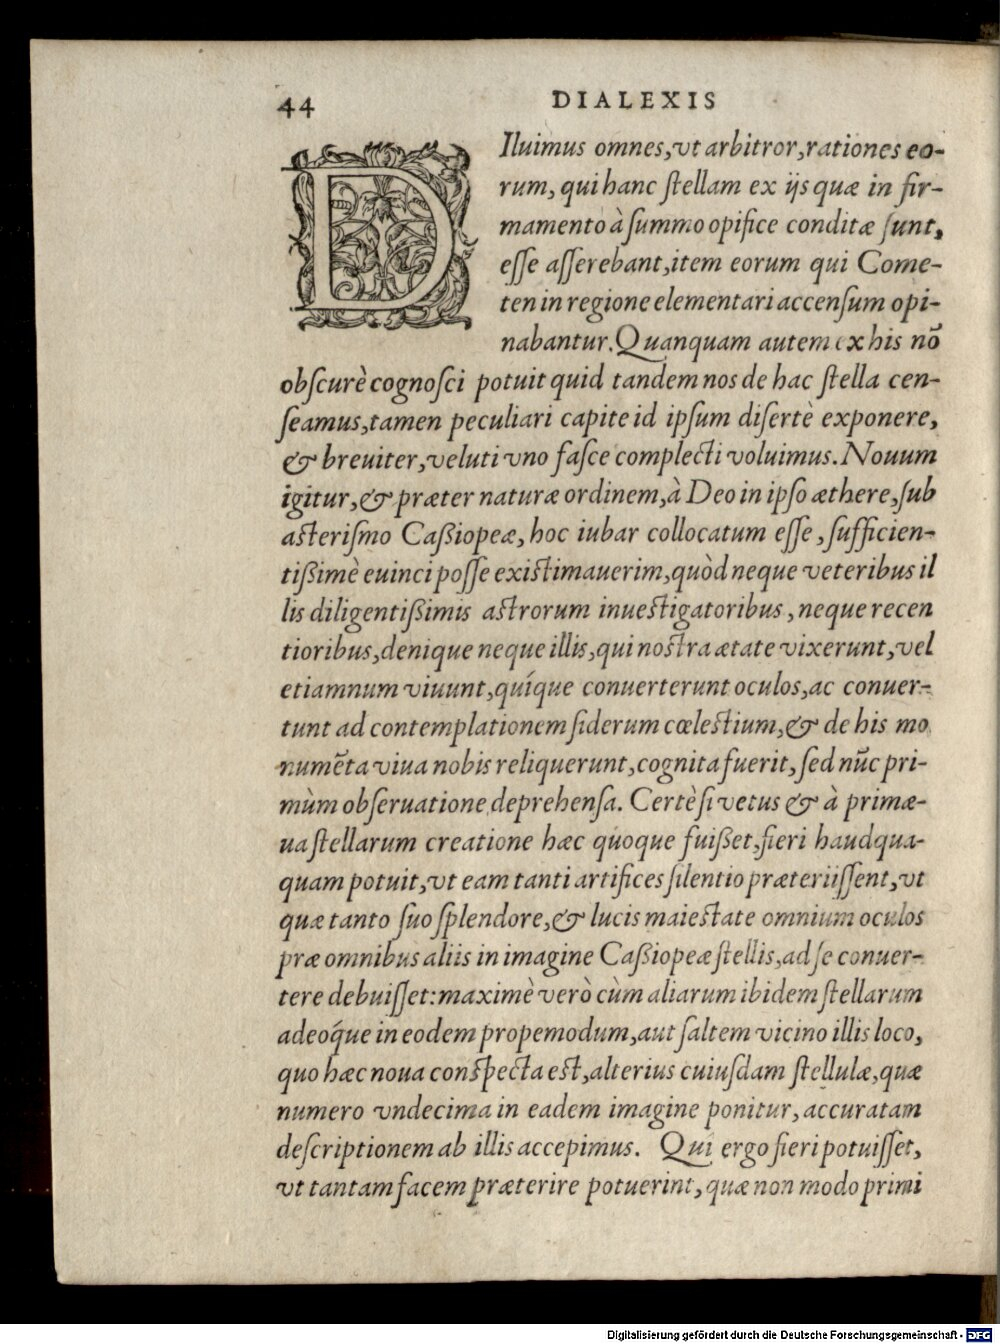 44 DIALEXIS
DIluimus omnes, vt arbitror, rationes eo-
rum, qui hanc ſtellam ex ijs quæ in fir-
mamento à ſummo opifice conditæ ſunt,
eſſe aſſerebant, item eorum qui Come-
ten in regione elementari accenſum opi-
nabantur. Quanquam autem ex his nō
obſcurè cognoſci potuit quid tandem nos de hac ſtella cen-
ſeamus, tamen peculiari capite id ipſum diſertè exponere,
& breuiter, veluti vno faſce complecti voluimus. Nouum
igitur, & præter naturæ ordinem, à Deo in ipſo æthere, ſub
aſteriſmo Caßiopeæ, hoc iubar collocatum eſſe, ſufficien-
tißimè euinci poſſe existimauerim, quòd neque veteribus il
lis diligentißimis aſtrorum inueſtigatoribus, neque recen
tioribus, denique neque illis, qui noſtra ætate vixerunt, vel
etiamnum viuunt, quíque conuerterunt oculos, ac conuer-
tunt ad contemplationem ſiderum cœleſtium, & de his mo
numēta viua nobis reliquerunt, cognita fuerit, ſed nūc pri-
mùm obſeruatione deprehenſa. Certè ſi vetus & à primæ-
ua ſtellarum creatione hæc quoque fuißet, fieri haudqua-
quam potuit, vt eam tanti artifices ſilentio præteriiſſent, vt
quæ tanto ſuo ſplendore, & lucis maieſtate omnium oculos
præ omnibus aliis in imagine Caßiopeæ ſtellis, ad ſe conuer-
tere debuiſſet: maximè verò cùm aliarum ibidem ſtellarum
adeóque in eodem propemodum, aut ſaltem vicino illis loco,
quo hæc noua conſpecta eſt, alterius cuiuſdam ſtellulæ, quæ
numero vndecima in eadem imagine ponitur, accuratam
deſcriptionem ab illis accepimus. Qui ergo fieri potuiſſet,
vt tantam facem præterire potuerint, quæ non modo primi
Digitalisierung gefördert durch die Deutsche Forschungsgemeinschaft - DFG